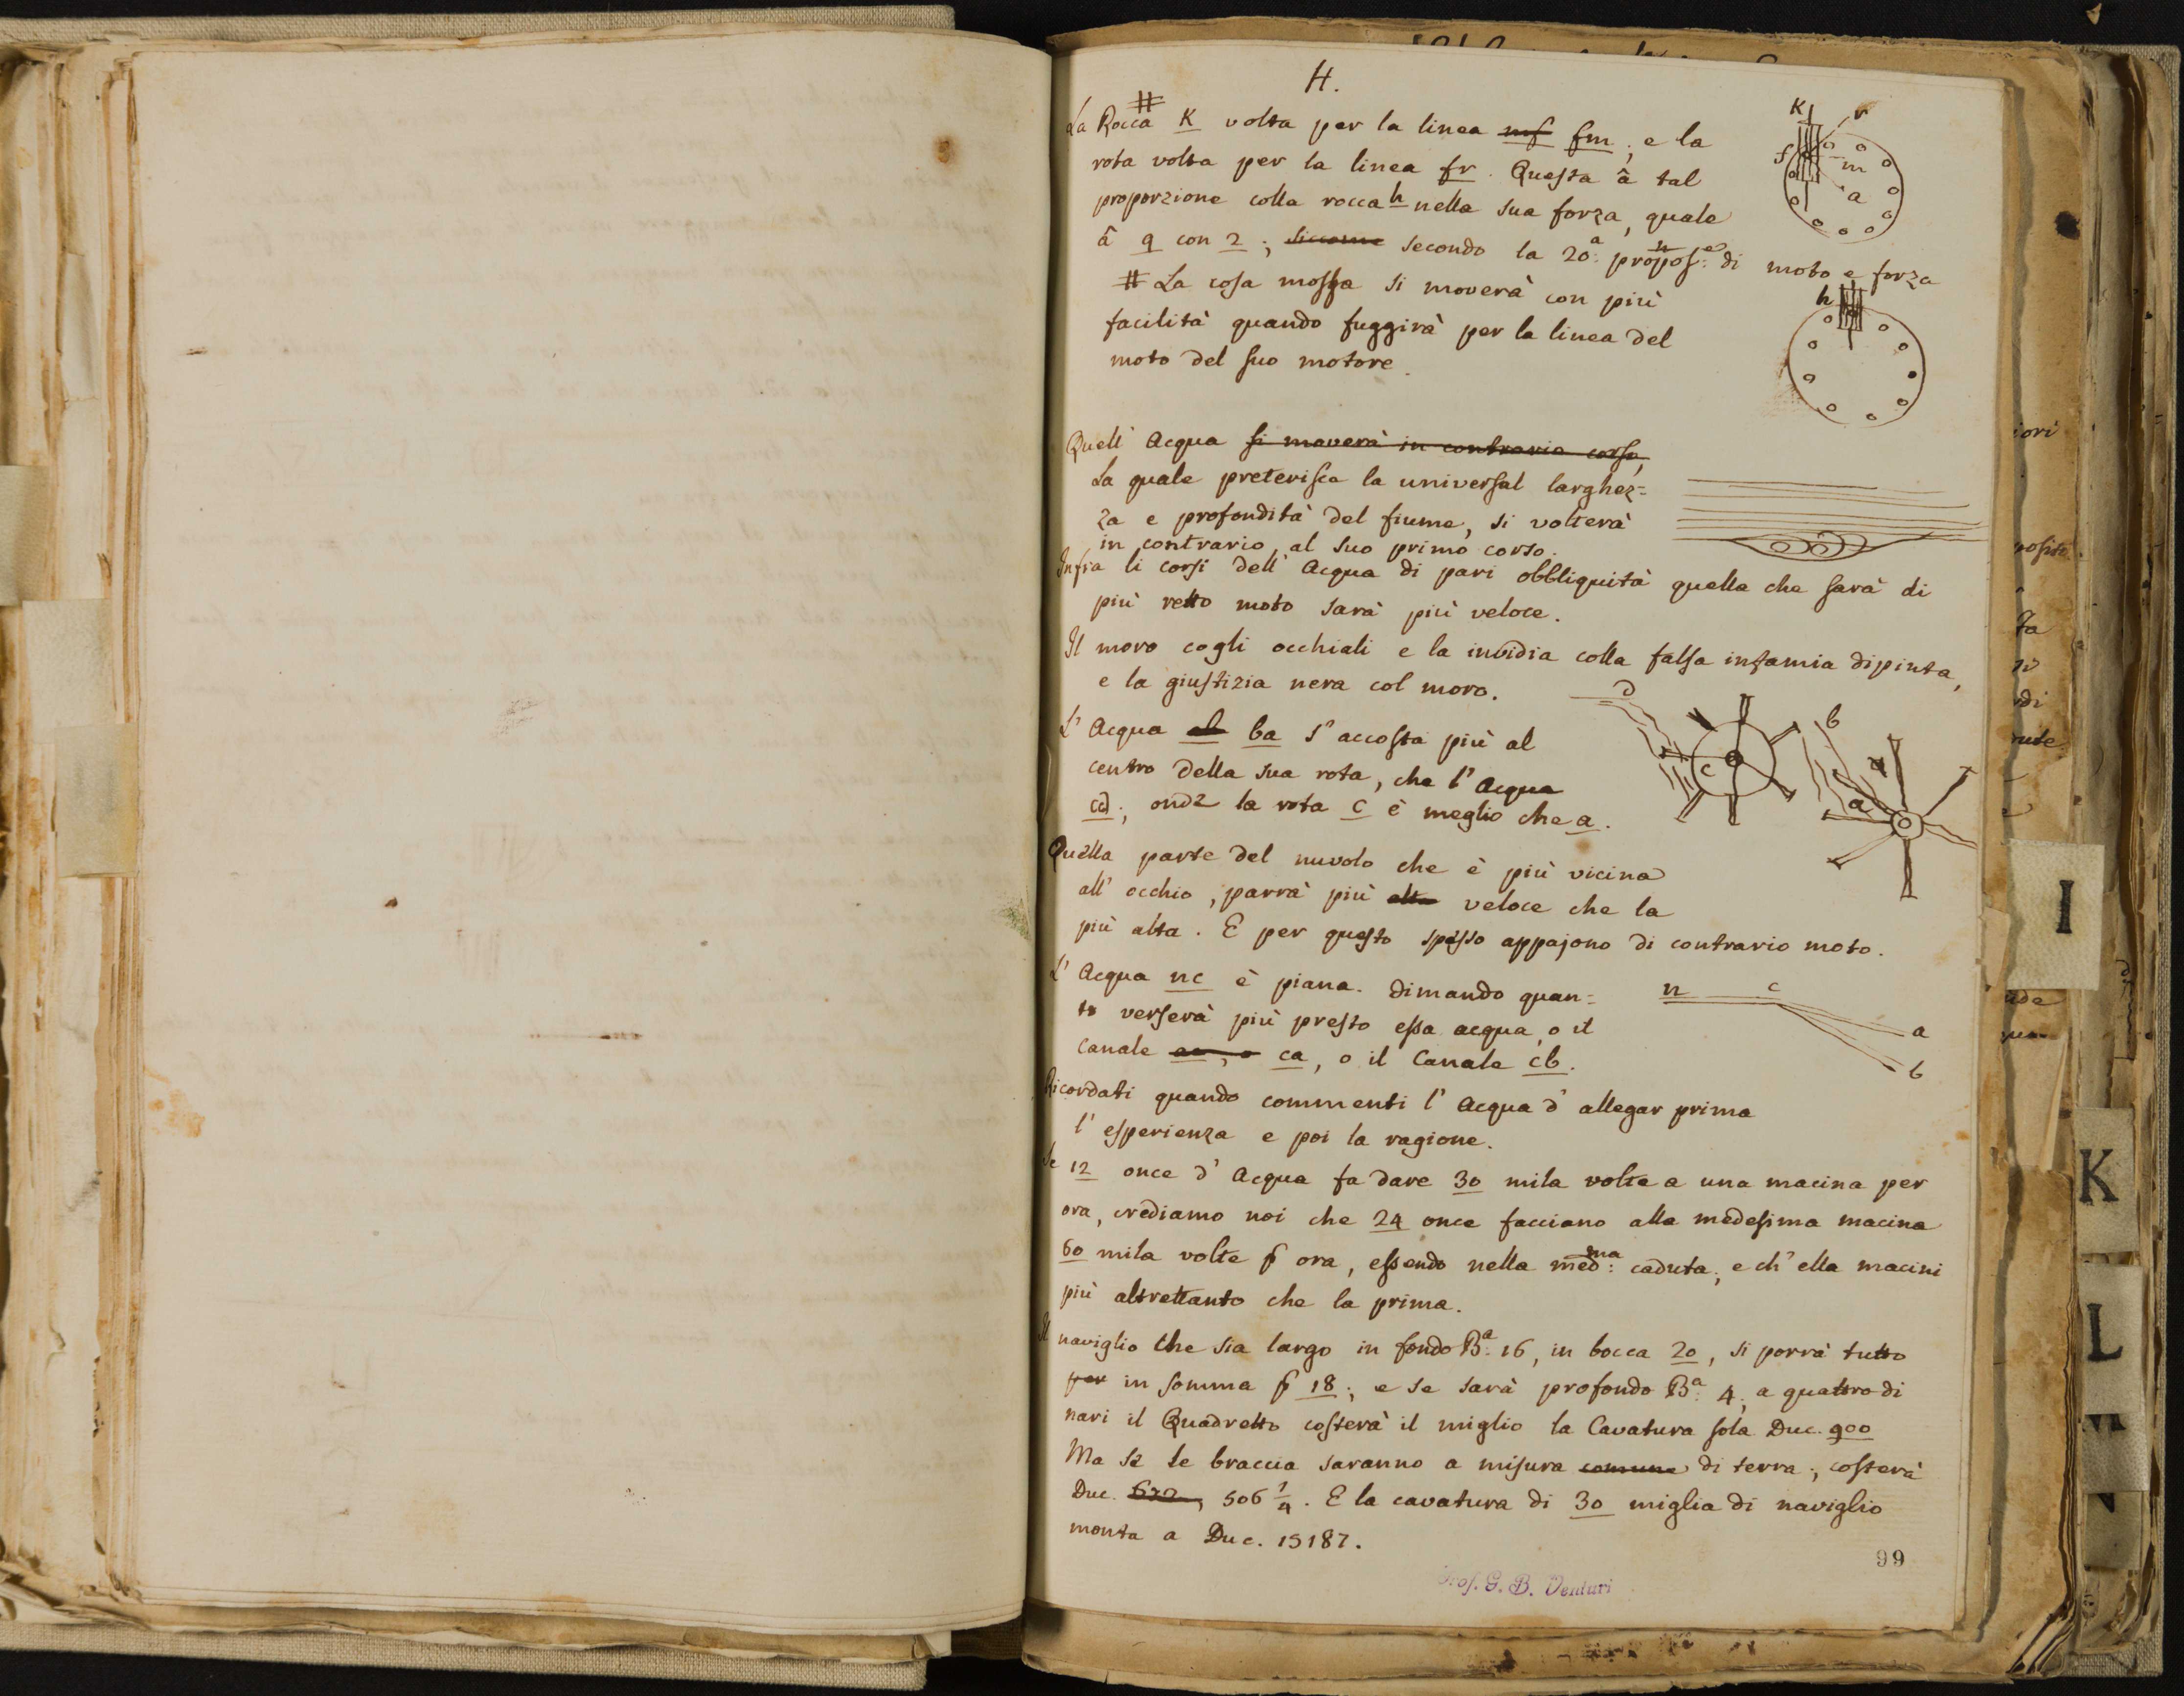 H.
La Rocca # K volta per la linea mf fm; e la
rota volta per la linea fr. Questa â tal
proporzione colla rocca h nella sua forza, quale
â 9 con 2; siccome secondo la 20.ª propos.ne di moto e forza
# La cosa mossa si moverà con più
facilità quando fuggirà per la linea del
moto del suo motore.
K r
f m
a
h
Quell' Acqua si moverà in contrario corso,
La quale preterisce la universal larghez=
za e profondità del fiume, si volterà
in contrario al suo primo corso.
Infra li corsi dell' Acqua di pari obbliquità quella che sarà di
più retto moto sarà più veloce.
Il moro cogli occhiali e la invidia colla falsa infamia dipinta,
e la giustizia nera col moro.
L' Acqua ab ba s' accosta più al
centro della sua rota, che l' Acqua
cd; onde la rota c è meglio che a.
D b
c a
Quella parte del nuvolo che è più vicina
all' occhio, parrà più alta veloce che la
più alta. E per questo spesso appajono di contrario moto.
L' Acqua nc è piana. dimando quan=
to verserà più presto essa acqua, o il
canale ac, o ca, o il Canale cb.
n c a
b
Ricordati quando commenti l' Acqua d' allegar prima
l' esperienza e poi la ragione.
Se 12 once d' Acqua fa dare 30 mila volte a una macina per
ora, crediamo noi che 24 once facciano alla medesima macina
60 mila volte p ora, essendo nella med:ma caduta; e ch' ella macini
più altrettanto che la prima.
Il naviglio che sia largo in fondo B.ª 16, in bocca 20, si porrà tutto
per in somma p 18; e se sarà profondo B.ª 4; a quattro di
nari il Quadretto costerà il miglio la Cavatura sola Duc. 900
Ma se le braccia saranno a misura comune di terra; costerà
Duc. 506 1/4. E la cavatura di 30 miglia di naviglio
monta a Duc. 15187.
99
Prof. G. B. Venturi
I
K
L
M
N